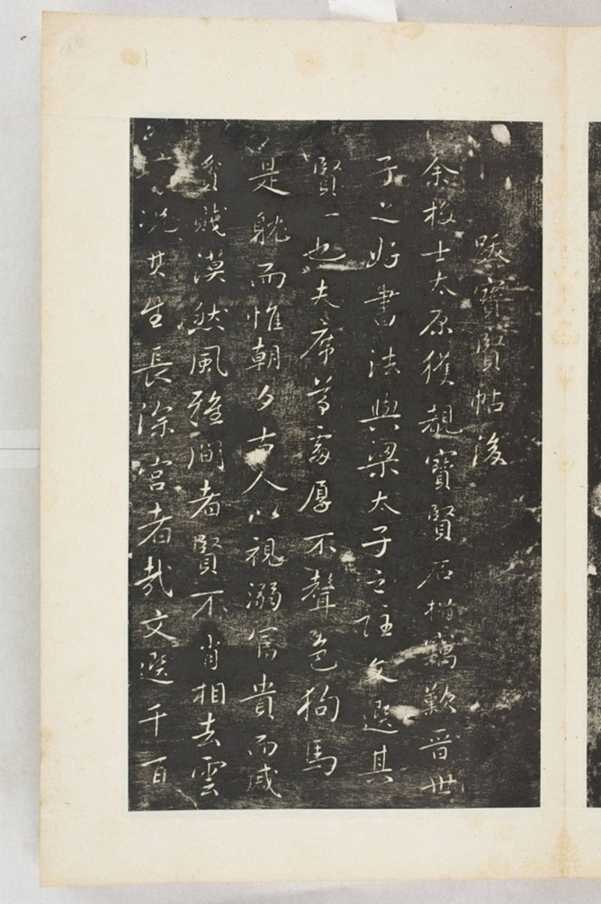 跋寶賢帖後
余校士太原獲覩寶賢石搨竊歎晉世
子之好書法與梁太子之註文選其
賢一也夫席尊處厚不聲色狗馬
是躭而惟朝夕古人以視溺富貴而戚
貧賤漠然風雅間者賢不肖相去雲
況其生長深宮者哉文選千百